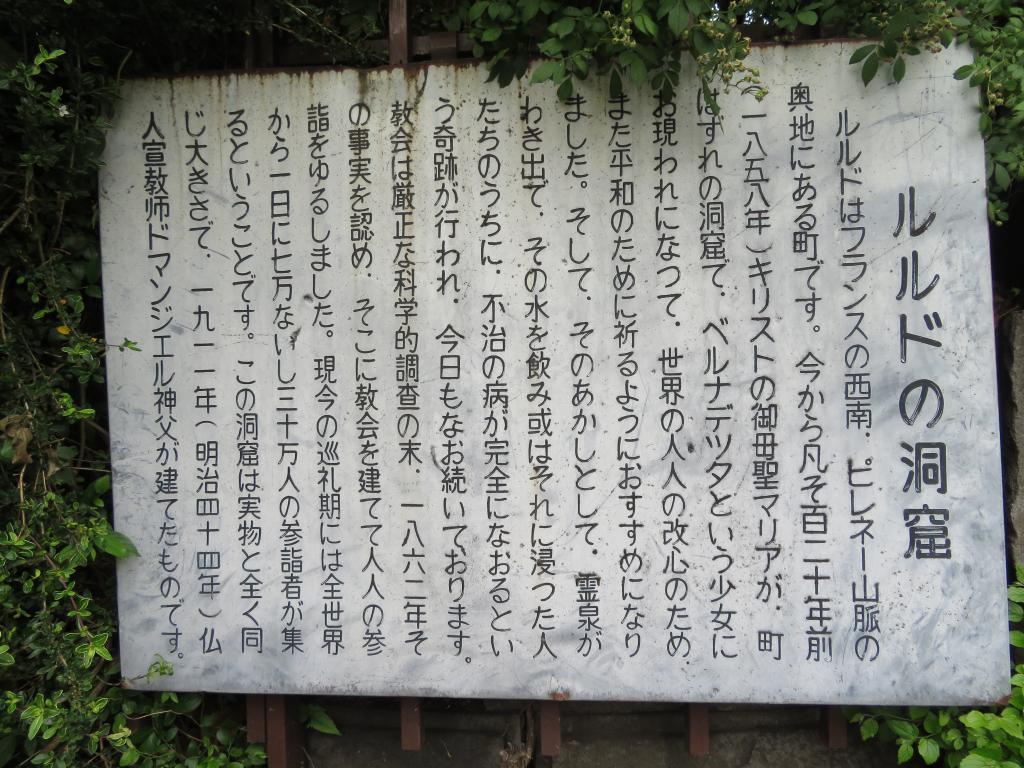 ルルドの洞窟
ルルドはフランスの西南．ピレネー山脈の
奥地にある町です。今から凡そ百二十年前
一八五八年）キリストの御母聖マリアが．町
はずれの洞窟で．ベルナデツタという少女に
お現われになつて．世界の人人の改心のため
また平和のために祈るようにおすすめになり
ました。そして．そのあかしとして．霊泉が
わき出で．その水を飲み或はそれに浸つた人
たちのうちに．不治の病が完全になおるとい
う奇跡が行われ．今日もなお続いております。
教会は厳正な科学的調査の末．一八六二年そ
の事実を認め．そこに教会を建てて人人の参
詣をゆるしました。現今の巡礼期には全世界
から一日に七万ないし三十万人の参詣者が集
るということです。この洞窟は実物と全く同
じ大きさで．一九一一年（明治四十四年）仏
人宣教師ドマンジエル神父が建てたものです。